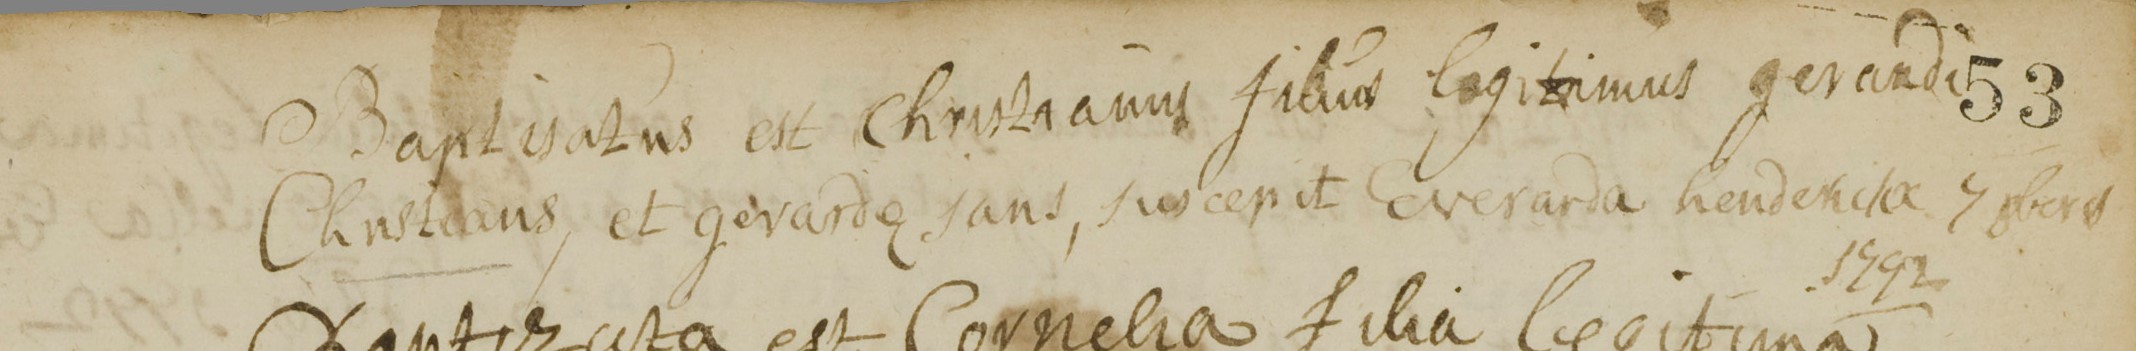 Baptisatus est Christianus filius legitimus gerardi 53
Christians, et gerardę jans, suscepit Everarda hendericka 7 xbers
1792
Baptizata est Cornelia filia legitima